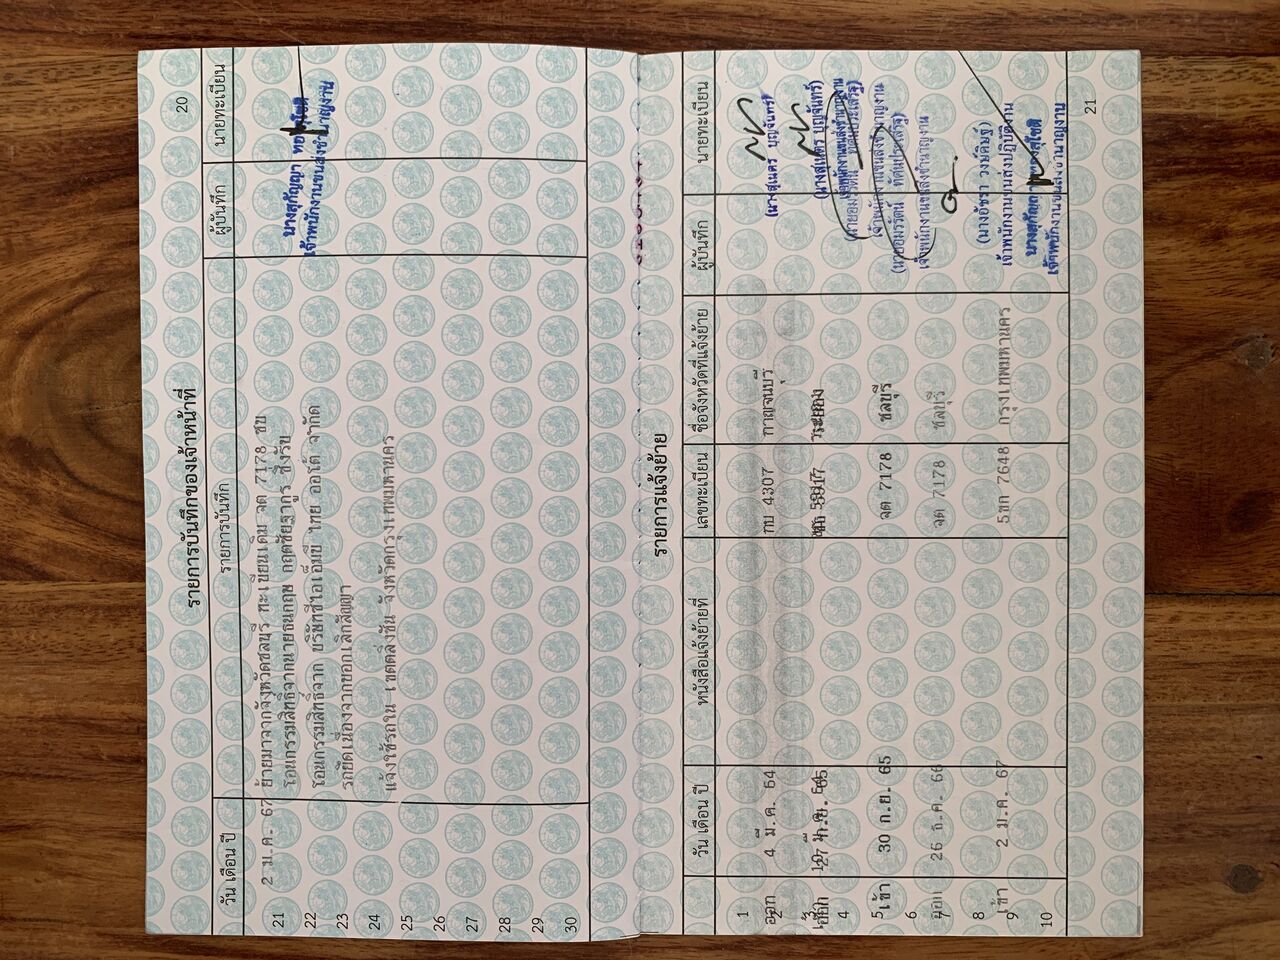 20
รายการบันทึกของเจ้าหน้าที่
วัน เดือน ปี รายการบันทึก ผู้บันทึก นายทะเบียน
21 2 ม.ค. 67 ย้ายมาจากจังหวัดชลบุรี ทะเบียนเดิม จต 7178 ชบ
22 โอนกรรมสิทธิ์จากนายธนกฤษ กฤตชัยฐากูร ซึ่งรับ
23 โอนกรรมสิทธิ์จาก บริษัทซีไอเอ็มบี ไทย ออโต้ จำกัด
24 รถยึดเนื่องจากบอกเลิกสัญญา
25 แจ้งใช้รถใน เขตตลิ่งชัน จังหวัดกรุงเทพมหานคร
26
27
28
29
30
นางสุกัญญา
เจ้าพนักงานขนส่งชำนาญงาน
รายการแจ้งย้าย
วัน เดือน ปี หนังสือแจ้งย้ายที่ เลขทะเบียน ชื่อจังหวัดที่แจ้งย้าย ผู้บันทึก นายทะเบียน
1
2 ออก 4 มี.ค. 64 กบ 4307 กาญจนบุรี
3 ระยอง
4
5 เข้า 30 ก.ย. 65 จต 7178 ชลบุรี
6
7 ออก 26 ธ.ค. 66 จต 7178 ชลบุรี
8
9 เข้า 2 ม.ค. 67 5ขก 7648 กรุงเทพมหานคร
10
(นางสุเนตร บุญจันทร์)
(นางสุเนตร บุญจันทร์)
เจ้าพนักงานขนส่งชำนาญงาน
เจ้าพนักงานขนส่งชำนาญงาน
(นางอัชรา วงษ์คิมฐ์)
เจ้าพนักงานขนส่งปฏิบัติงาน
นางสุกัญญา
เจ้าพนักงานขนส่งชำนาญงาน
21